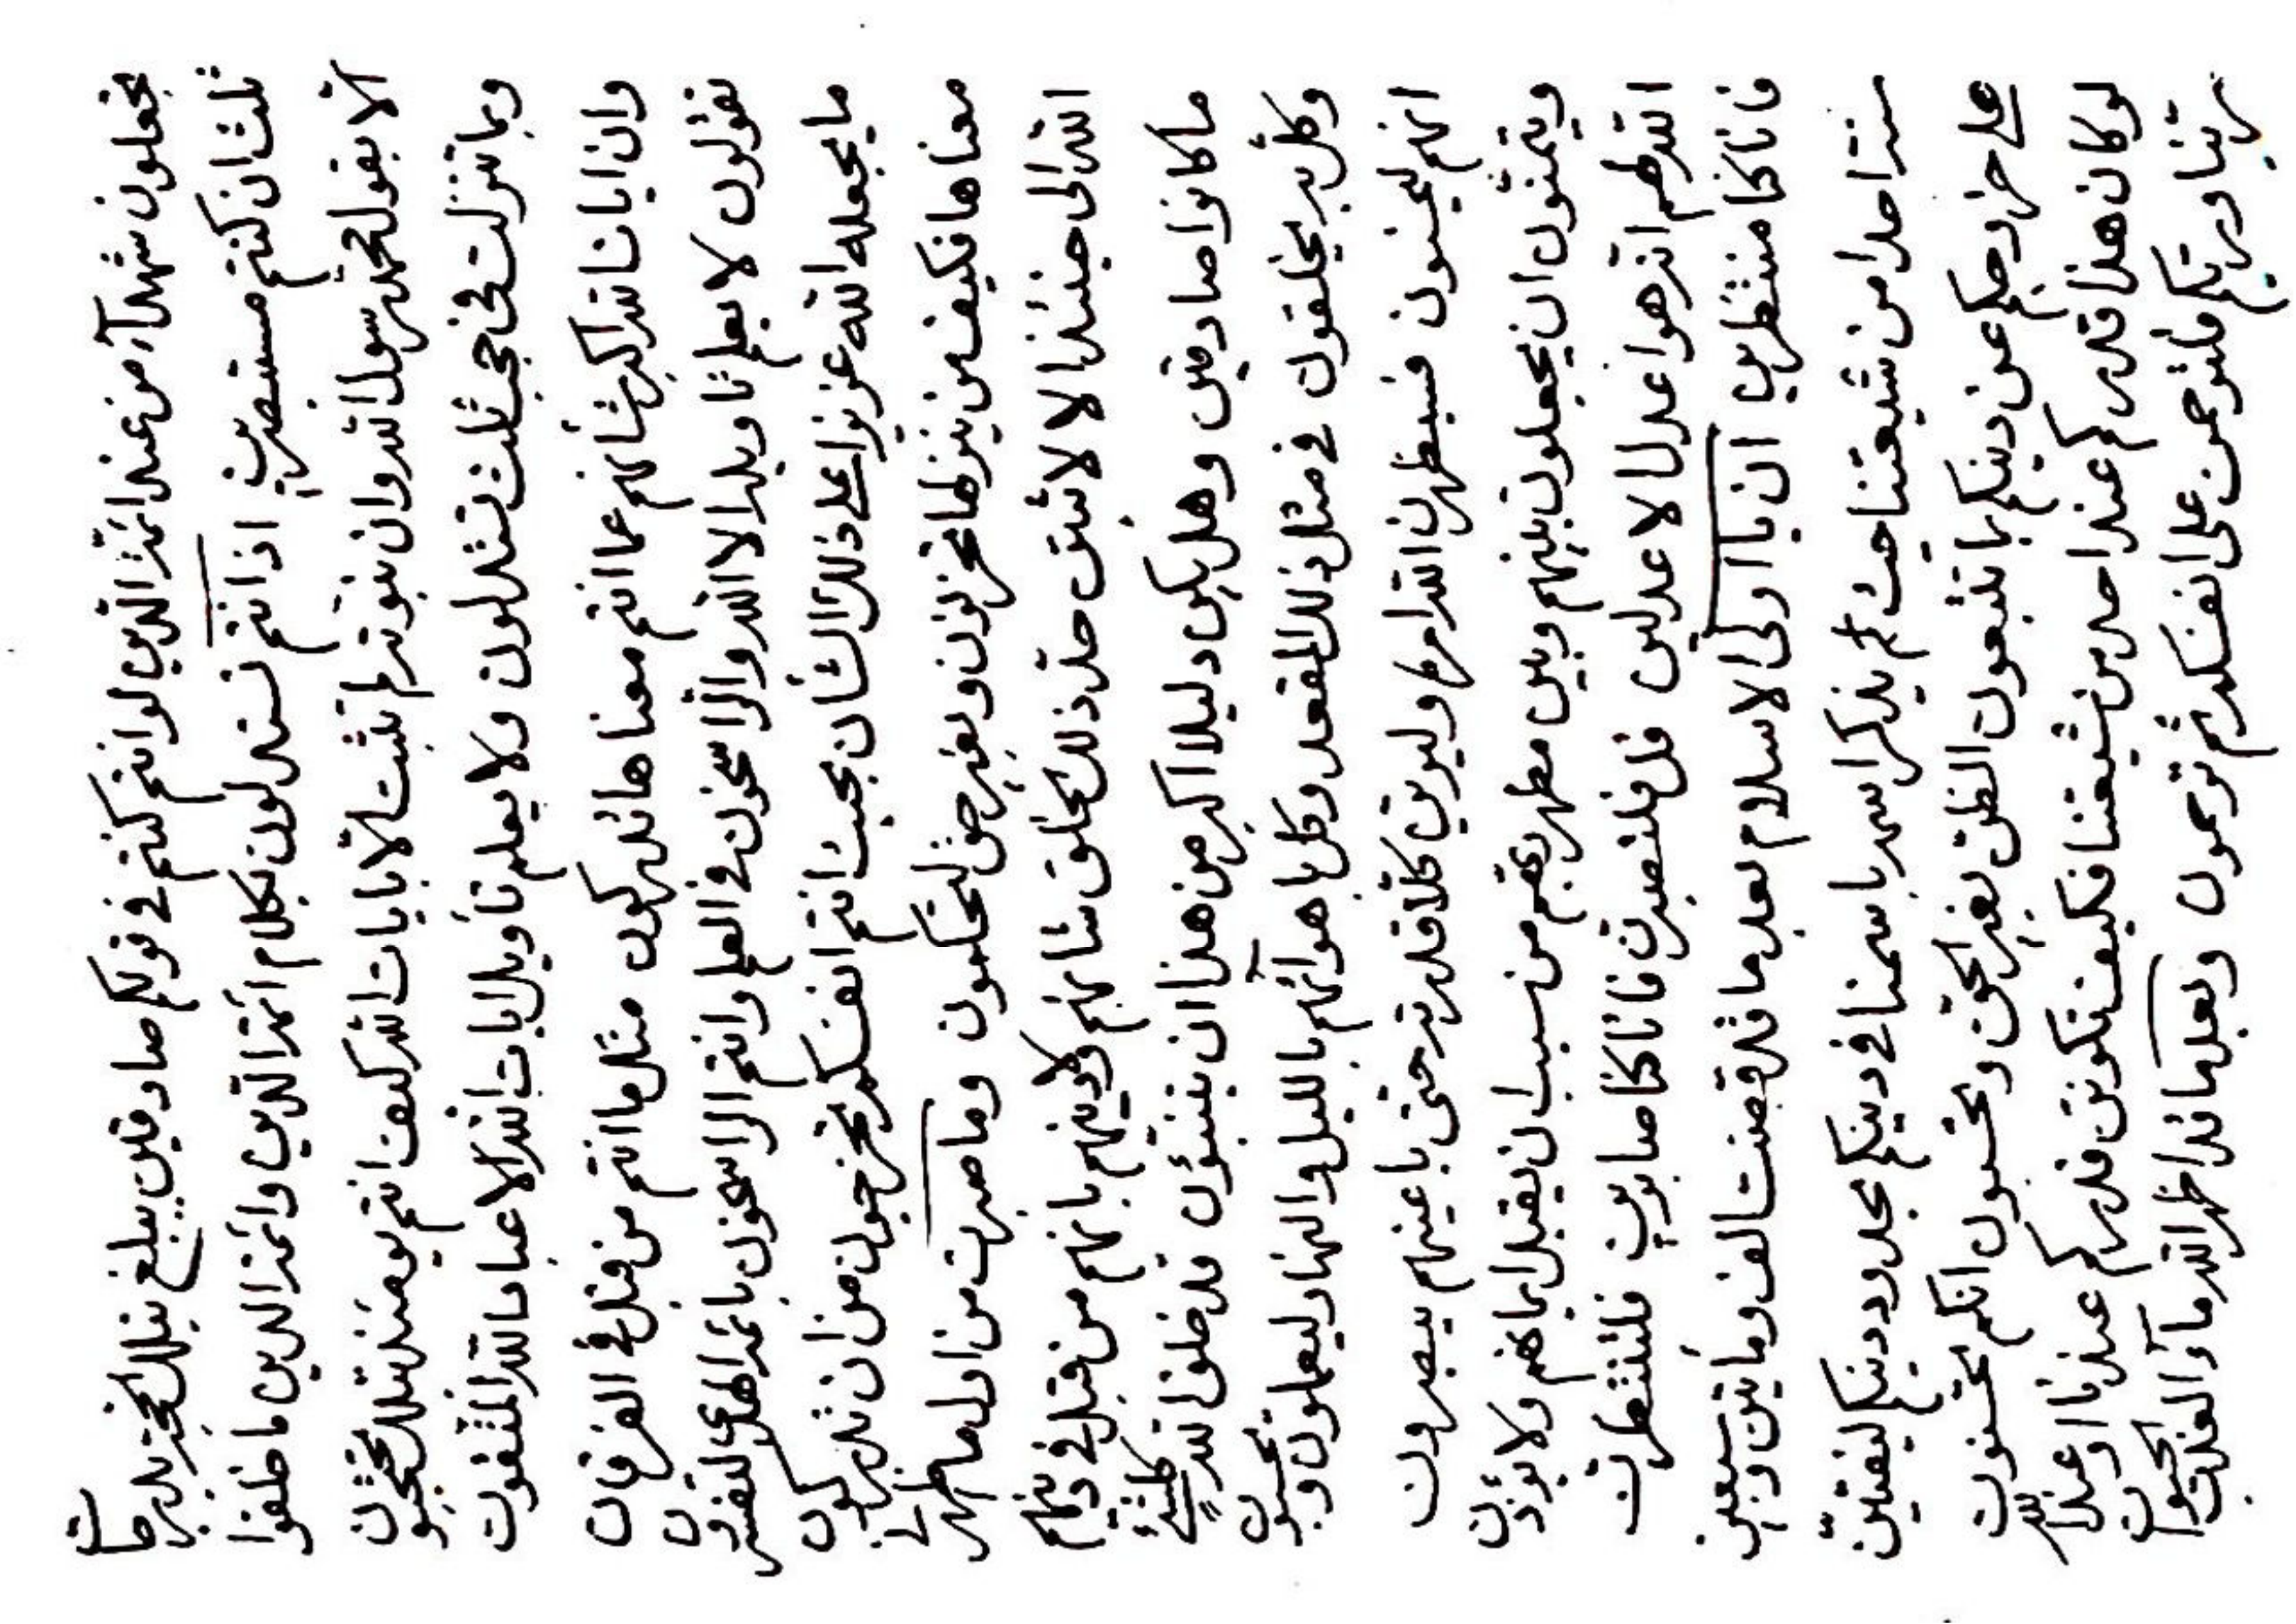 تجعلون شهدآء من عند ائمة الذين لو انتم كنتم في قولكم صادقين يبلغ بتلك الحجة بدرجات
ثلث ان كنتم مستبصرين اذا انتم تستدلون بكلام ائمة الذين وائمة الدين ما خلقوا
الا بقول محمد رسول الله وان نبوته لم تثبت الا بايات الله كيف انتم يومئذ بتلك تحتجبون
وبما تنزلت في حجب ثلث تستدلون ولا يعلم تأويل ايات الله الا عباد الله المتقون
وان ايات الله اكبر شأنهم عما انتم معناها تدركون مثل ما انتم من قبل في الفرقان
تقولون لا يعلم تاويلها الا الله والراسخون في العلم وانتم الراسخون بائمة الهدى لتفسرن
ما يجعله الله عزيزا على ذلك الشأن بحيث انتم انفسكم تعجزون من ان تدركون
معناها فكيف من ينزلها تحزنون وبغير حق لتحكمون وما صبرت من اول ما
الله الى حينئذ الا لاثبت حد ذلك الخلق شانهم ولادينهم بانهم من قبل في دينهم
ما كانوا صادقين وهل يكن دليلا اكبر من هذا ان ينبئون قد خلق الله كلشئ
وكل به يخلقون في مثل ذلك المقعد وكل باهوآئهم بالليل والنهار ليعملون ويحسبون
انهم ليحسنون فسيظهرن الله امره وليرين كلا قدرته حتى باعينهم يبصرون
ويتمنون ان يجعلون بينهم وبين مظهر ربهم من سبب ان يقبل ايمانهم ولا يؤذن
الله لهم انه هو اعدل الاعدلين قل فلتصبرن فانا كنا صابرين فلتنتظرن
فانا كنا منتظرين ان يا اولى الاسلام بعد ما قد قضت الف ومأتين وسبعين
سنة احدا من شيعتنا حيث لم يذكر اسمه باسمنا في دينكم دينكم ليفتين
على خروجكم عن دينكم بما تتبعون الظن بغير الحق وتحسبون انكم تحسنون
لو كان هذا قدركم عند احد من شيعتنا فكيف تكونن قدركم عندنا او عند الله
ربنا وربكم فلترحمن على انفسكم ثم ترحمون وبعد ما قد اظهر الله مآء العذب الحيوان